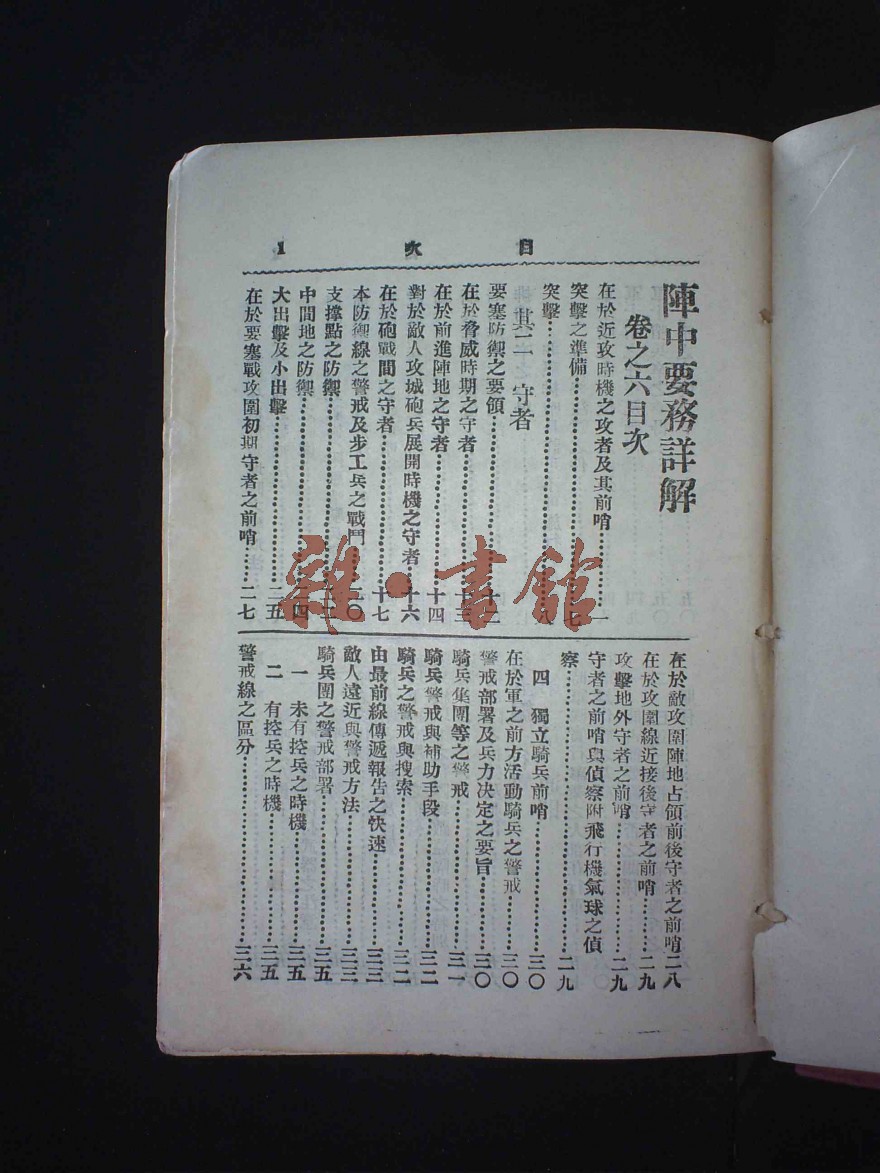 目次 1
陣中要務詳解
卷之六目次
在於近攻時機之攻者及其前哨……一
突擊之準備……七
突擊……
其二 守者
要塞防禦之要領……十二
在於脅威時期之守者……十三
在於前進陣地之守者……十四
對於敵人攻城砲兵展開時機之守者…十六
在於砲戰間之守者……十七
本防禦線之警戒及步工兵之戰鬥……二〇
支撐點之防禦……
中間地之防禦……二四
大出擊及小出擊……二五
在於要塞戰攻圍初期守者之前哨……二七
在於敵攻圍陣地占領前後守者之前哨二八
在於攻圍線近接後守者之前哨……二九
攻擊地外守者之前哨……二九
守者之前哨與偵察附飛行機氣球之偵
察……二九
四 獨立騎兵前哨……三〇
在於軍之前方活動騎兵之警戒……三〇
警戒部署及兵力決定之要旨……三〇
騎兵集團等之警戒……三一
騎兵警戒與補助手段……三二
騎兵之警戒與搜索……三二
由最前線傳遞報告之快速……三三
敵人遠近與警戒方法……三三
騎兵團之警戒部署……三五
一 未有控兵之時機……三五
二 有控兵之時機……三五
警戒線之區分……三六
雜·書館